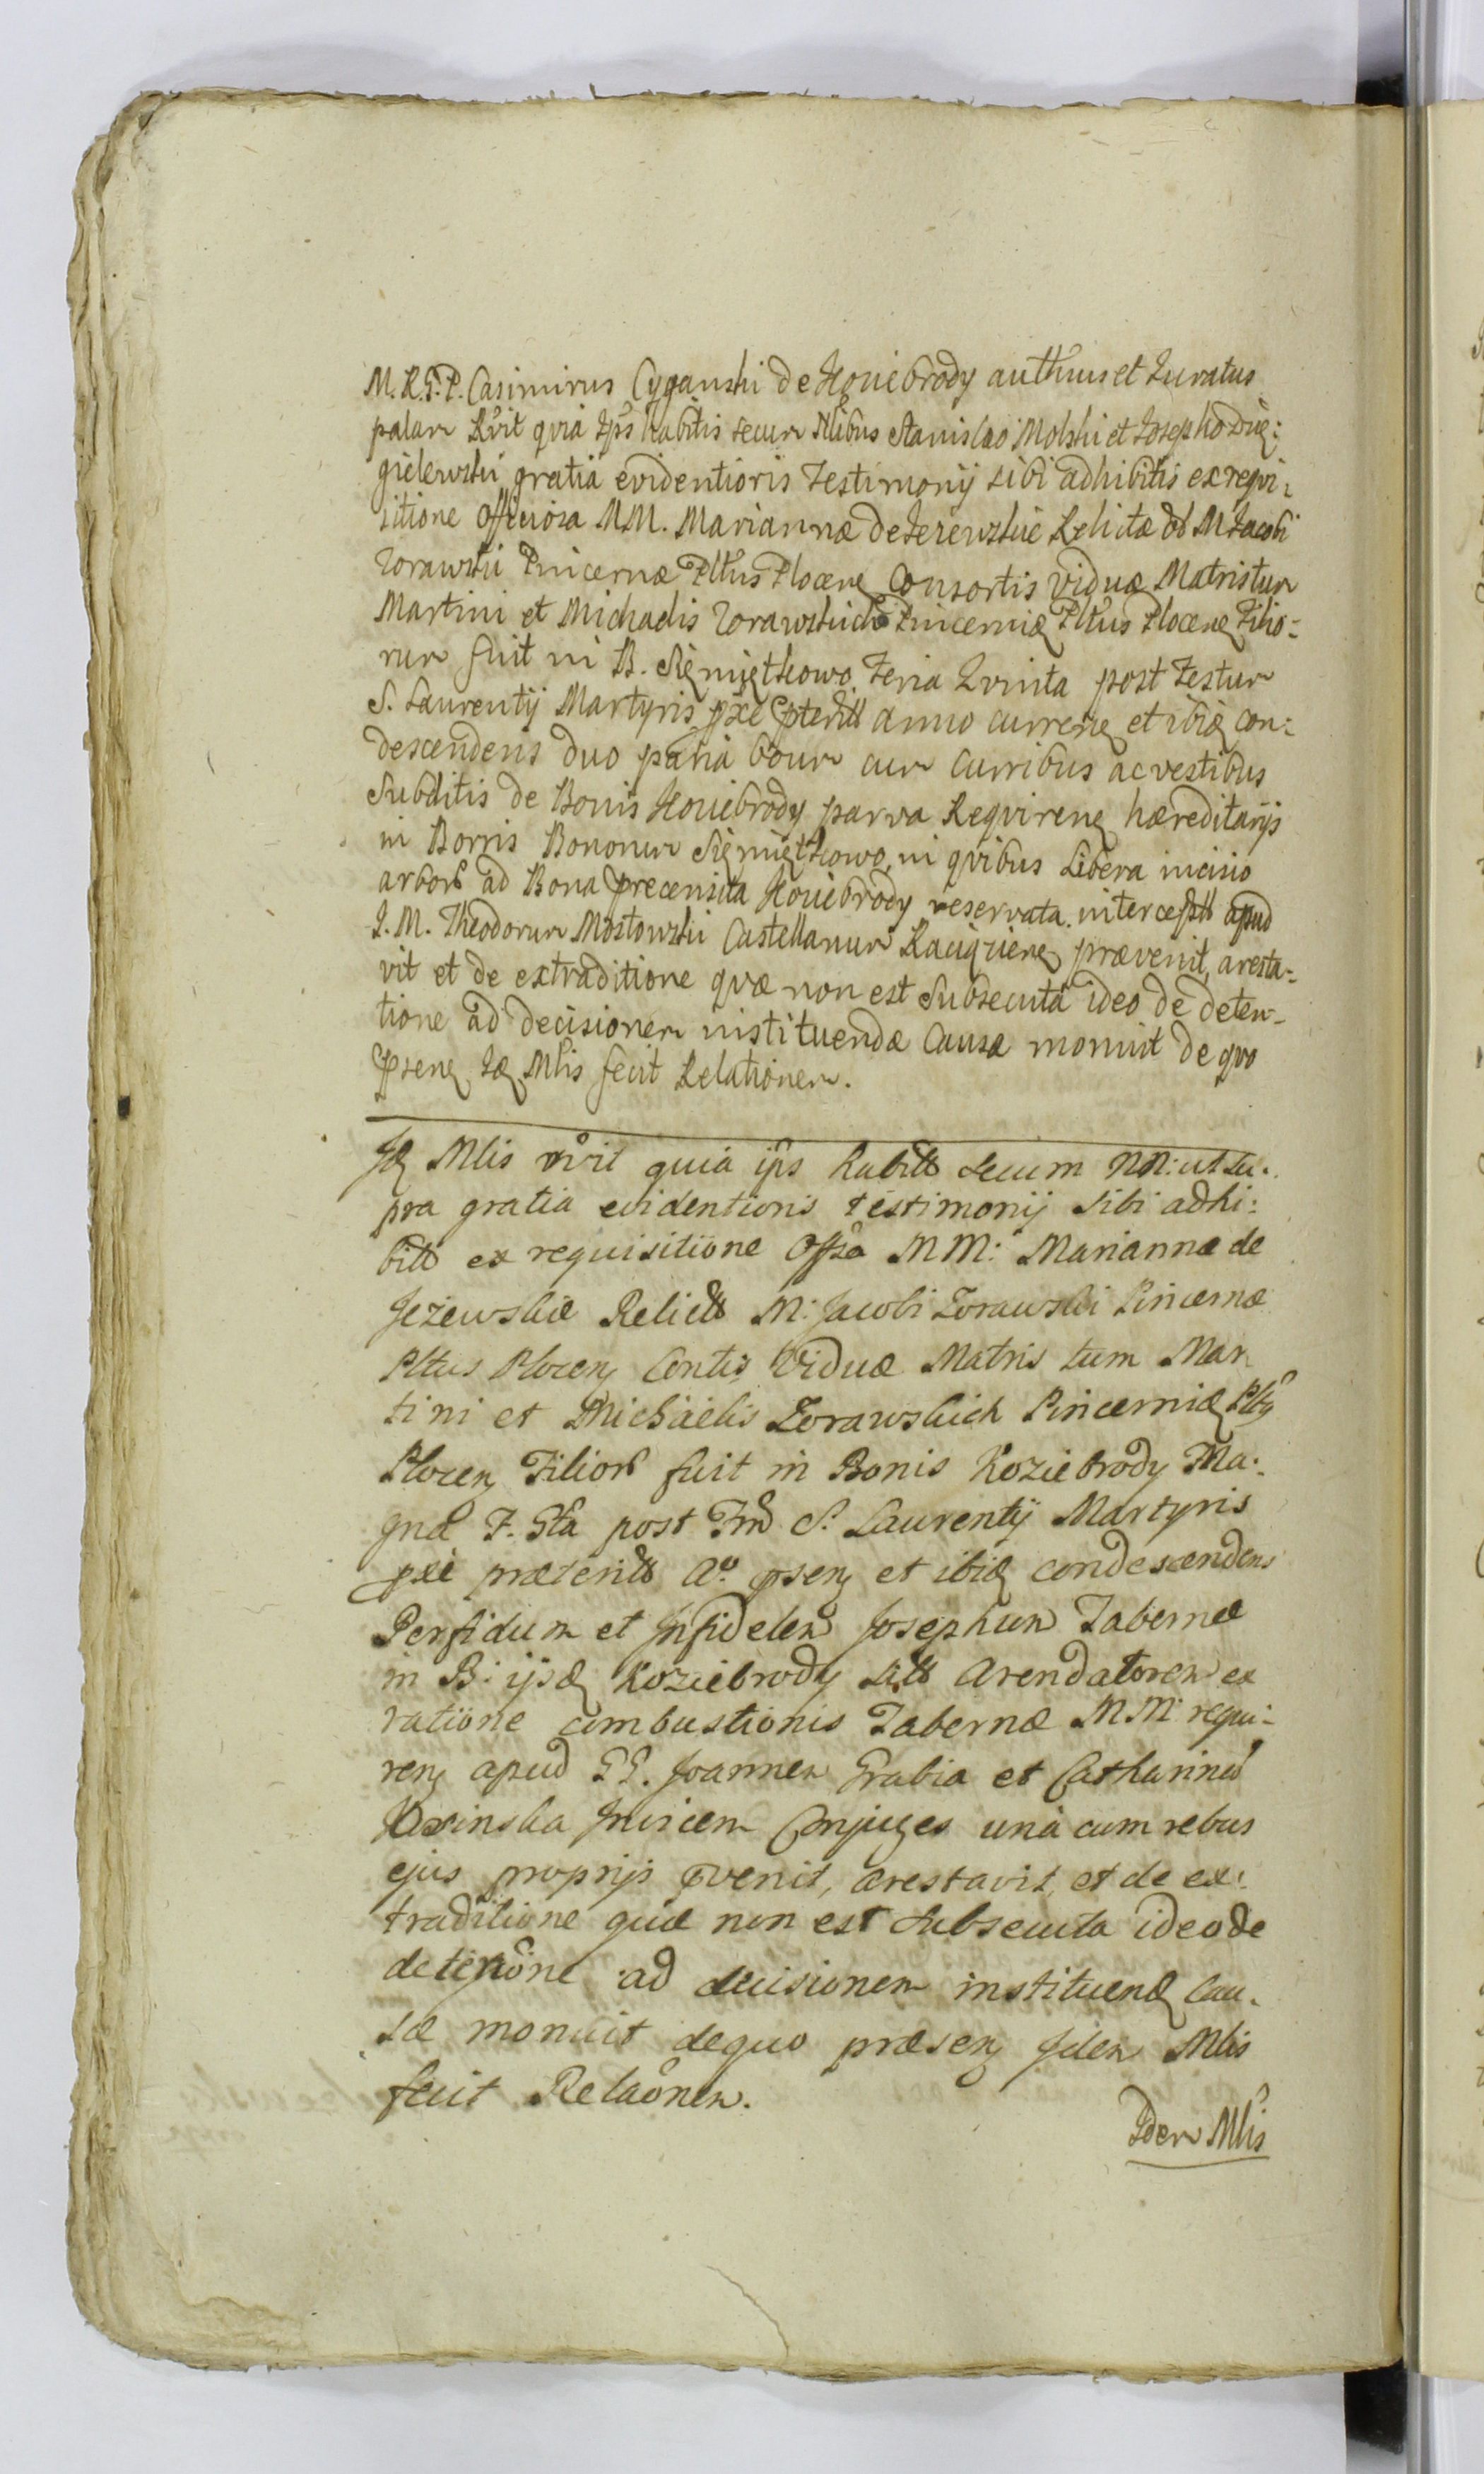 M. R. G. P. Casimirus Cyganski de Koziebrody authus et Juratus
palam Rvit qvia Ips habitis secum Nlibus Stanislao Molski et Josepho Dzię:
gielewski gratia evidentioris Testimonij sibi adhibitis ex reqvi:
sitione officiosa MM. Mariannæ de Jezewskie Relictæ M Jacobi
Zorawski Pincernæ Pltus Plocen Consortis Viduæ Matris tum
Martini et Michaelis Zorawskich Pincernią Pltus Plocen Filio:
rum fuit in B. Siemiętkowo Feria Qvinta post Festum
S. Laurentij Martyris pxe pterill anno curren et ibiq con:
descendens duo paria boum cum curribus ac vestibus
Subditis de Bonis Koziebrody parva Reqviren hæreditarijs
in Borris Bonorum Siemiętkowo, in qvibus Libera incisio
arbor ad Bona precensita Koziebrody reservata intercept apud
I. M. Theodorum Mostowski Castellanum Raciązien prævenit, aresta:
vit et de extraditione qvæ non est Subsecuta ideo de deten:
tione ad decisionem instituendæ Causæ monuit de qvo
psen Id Mlis fecit Relationem.
Id Mlis rvit quia ips habitt secum NN: ut su:
pra gratia evidentioris testimonij sibi adhi:
bitt ex requisitione offsa MM: Mariannæ de
Jeżewskie Relictt M: Jacobi Zorawski Pincernæ
Pltus Plocen Contis Viduæ Matris tum Mar
tini et Michaelis Zorawskich Pincernią Plty
Plocen Filior fuit in Bonis Koziebrody Ma:
gna F. 5ta post Fm S. Laurentij Martyris
pxe præteritt Ao. psen et ibiq condescendens
Perfidum et Infidelem Josephum Tabernæ
in B: ijsd Koziebrody sitt Arendatorem ex
ratione combustionis Tabernæ MM: requi:
ren apud GG. Joannem Grabia et Catharinam
invicem Conjuges una cum rebus
ejus proprijs pvenit, arestavit, et de ex:
traditione quæ non est subsecuta ideo de
detenone ad decisionem instituend Cau:
sæ monuit de quo præsen Idem Mlis
fecit Relaonem.
Idem Mlis